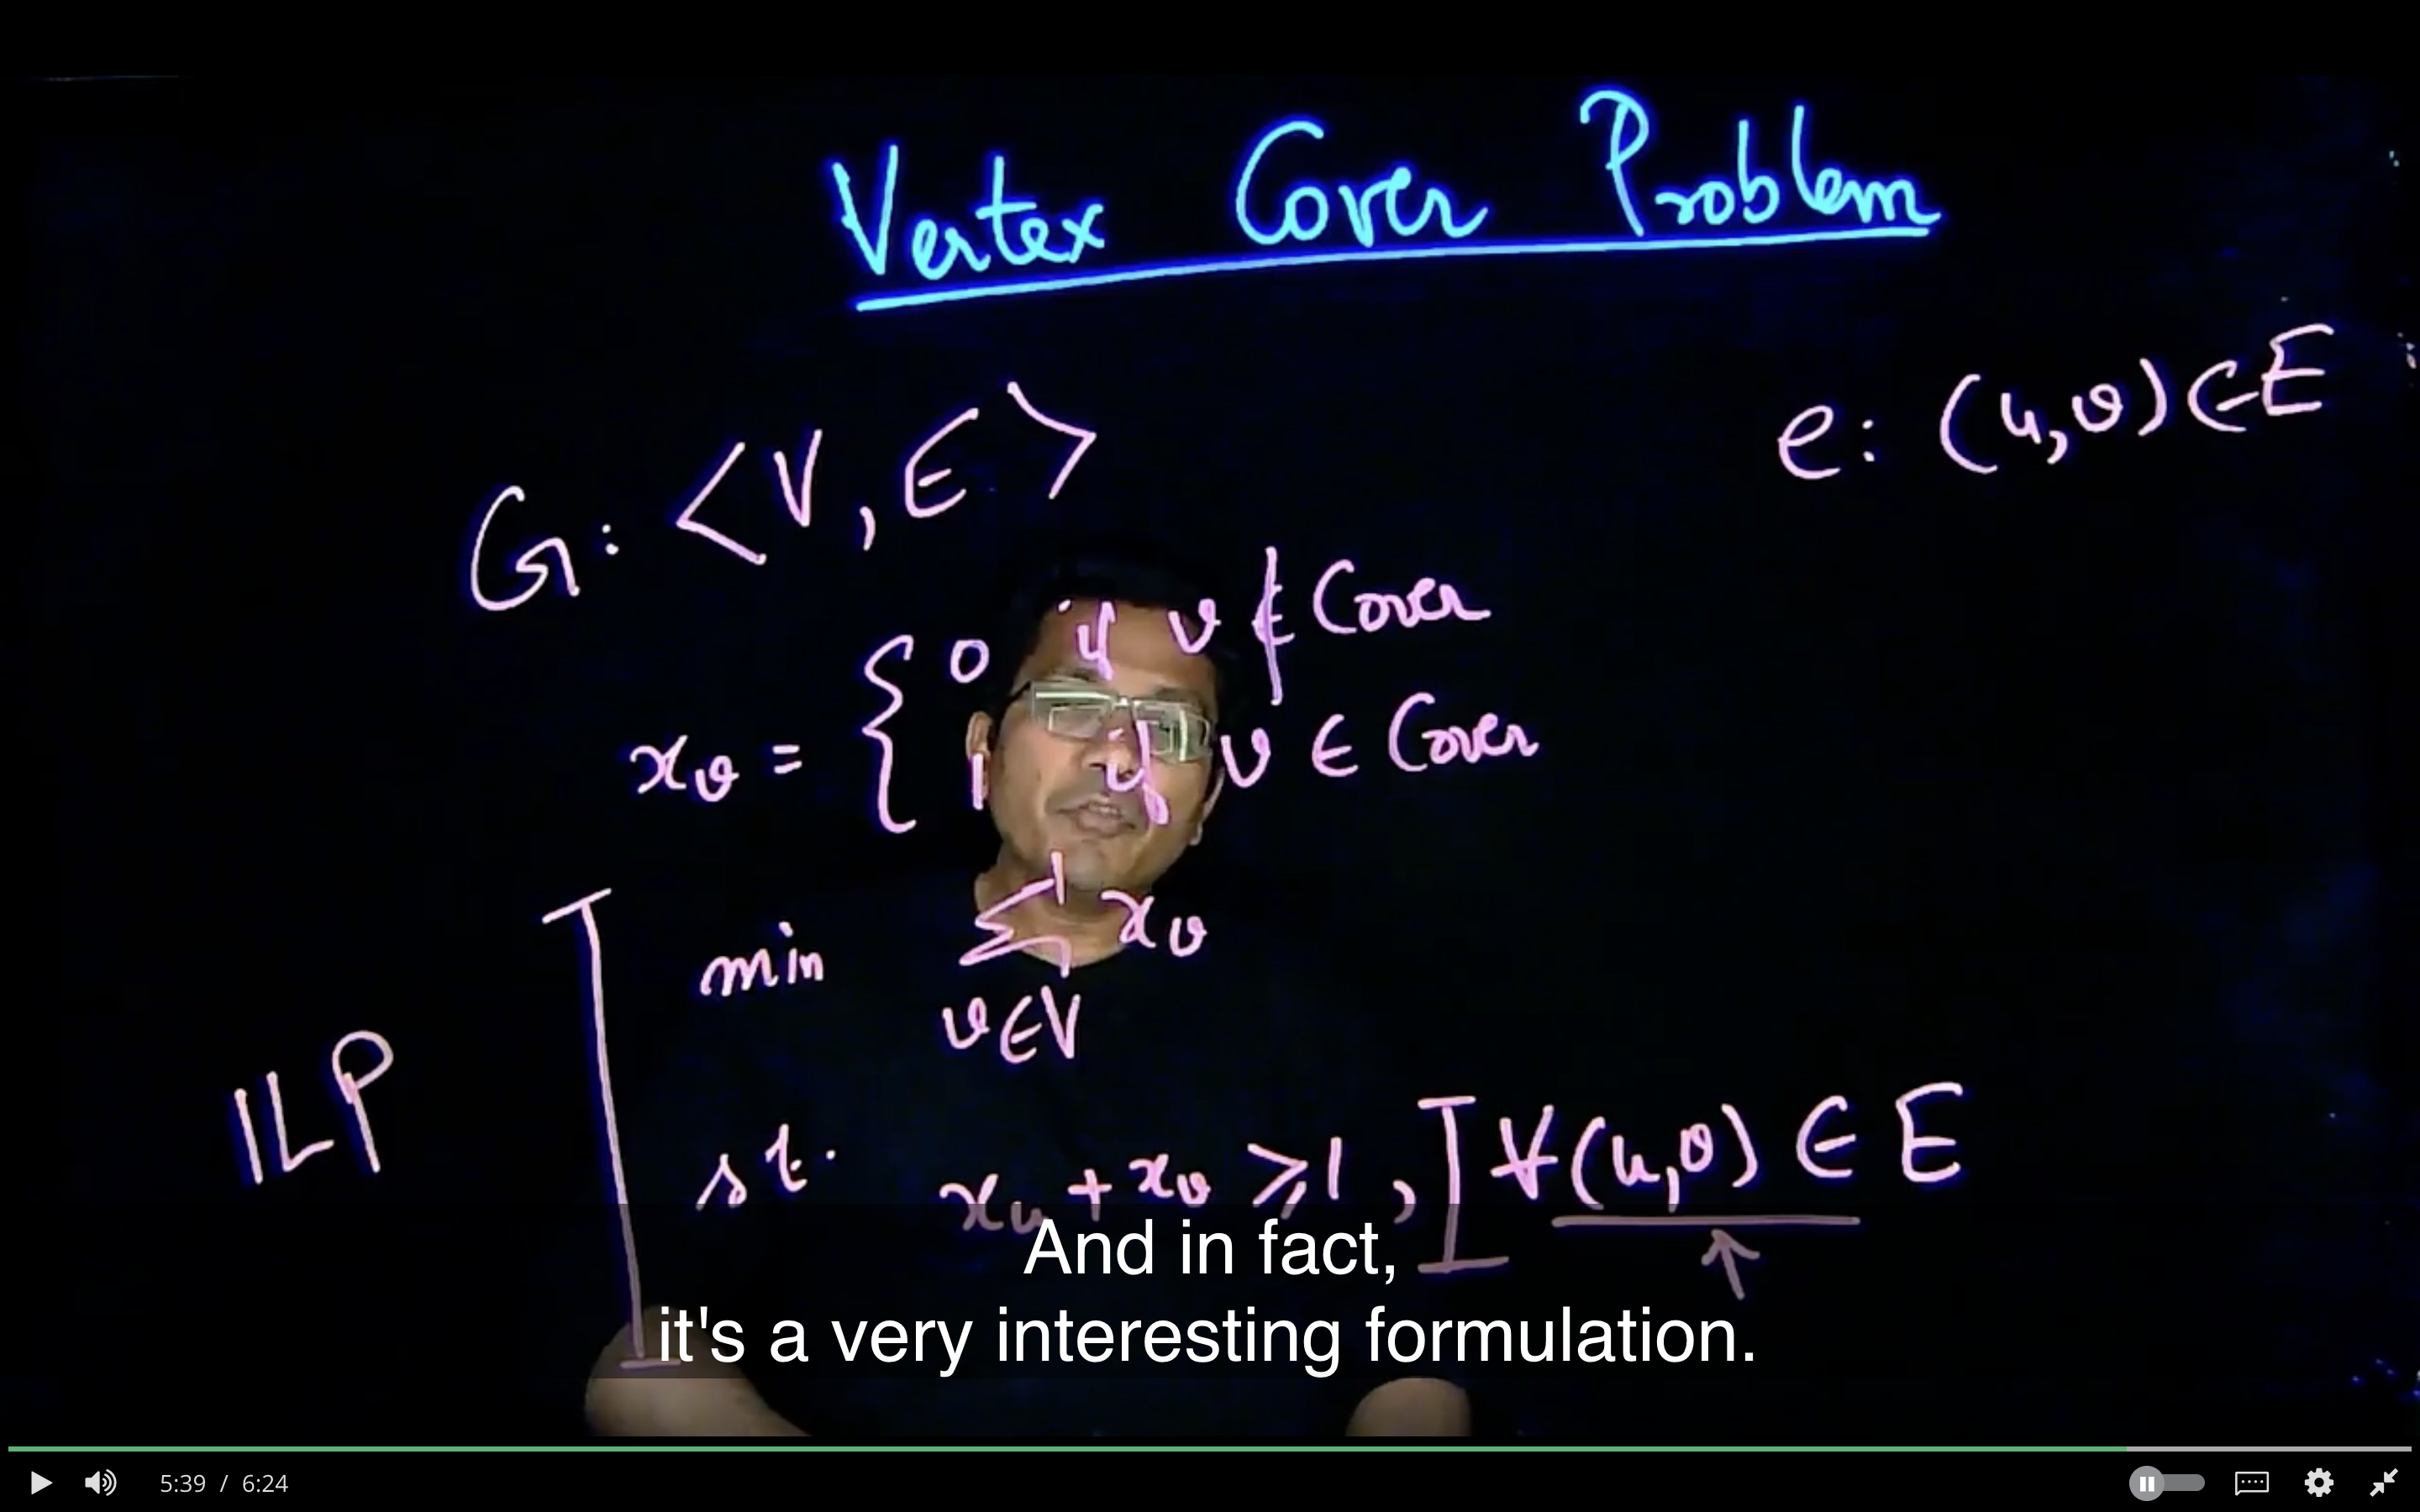 Vertex Cover Problem
G: <V, E>
e: (u,v) ∈ E
x_v = { 0 if v ∉ Cover
1 if v ∈ Cover
ILP
min Σ x_v
v∈V
st. x_u + x_v ≥ 1, ∀(u,v) ∈ E
And in fact,
it's a very interesting formulation.
5:39 / 6:24